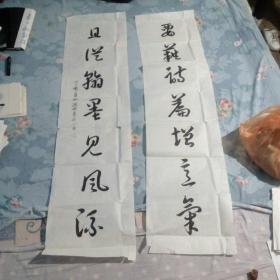 要藉诗篇增意氣
且從翰墨見風流